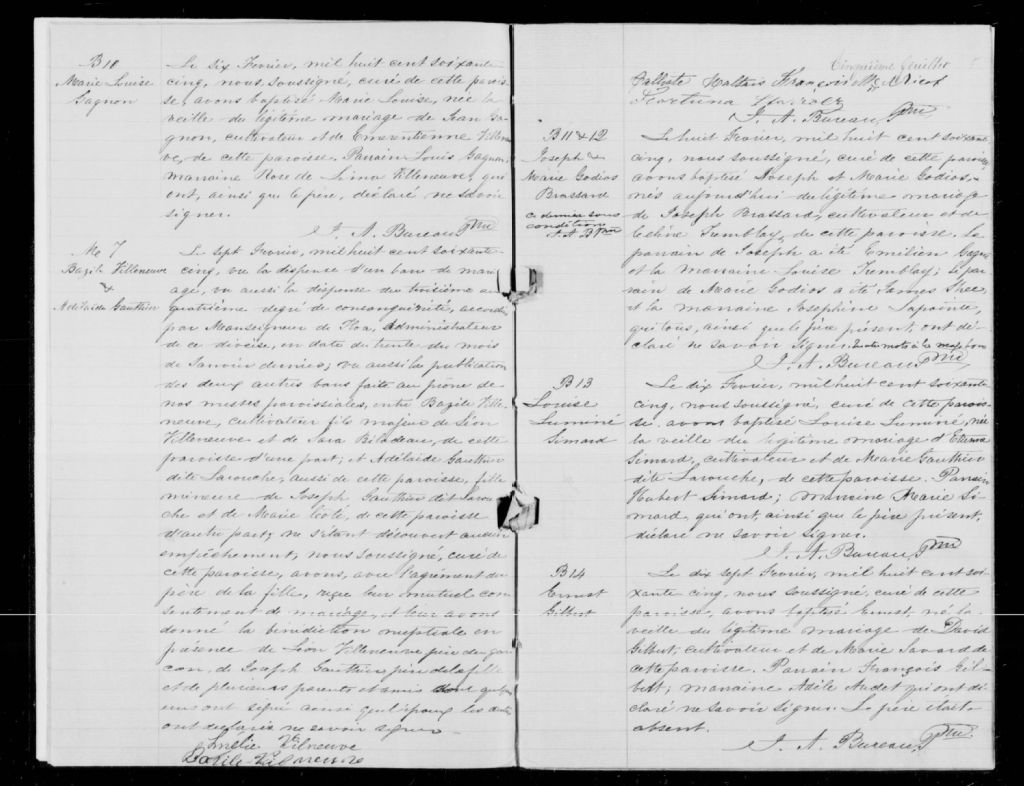 B 10
Marie Louise
Gagnon
Le six Fevrier, mil huit cent soixante
cinq, nous soussigné, curé de cette parois-
se, avons baptisé Marie Louise, née la
veille du légitime mariage de Jean Ga-
gnon, cultivateur et de Emerentienne Villeneu-
ve, de cette paroisse. Parrain Louis Gagnon,
marraine Rose de Lima Villeneuve, qui
ont, ainsi que le père, déclaré ne savoir
signer.
J. A. Bureau, Ptre
M 7
Bazile Villeneuve
&
Adélaïde Gauthier
Le sept Fevrier, mil huit cent soixante-
cinq, vu la dispense d'un ban de mari-
age, vu aussi la dispense du troisième au
quatrième degré de consanguinité, accordée
par Monseigneur de Tloa, Administrateur
de ce diocèse, en date du trente du mois
de Janvier dernier; vu aussi la publication
des deux autres bans faite au prône de
nos messes paroissiales, entre Bazile Ville-
neuve, cultivateur fils majeur de Léon
Villeneuve et de Sara Bilodeau, de cette
paroisse d'une part; et Adélaïde Gauthier
dite Larouche, aussi de cette paroisse, fille
mineure de Joseph Gauthier dit Larou-
che et de Marie Coté, de cette paroisse
d'autre part; ne s'étant découvert aucun
empêchement; nous soussigné, curé de
cette paroisse, avons, avec l'agrément du
père de la fille, reçu leur mutuel con-
sentement de mariage, et leur avons
donné la bénédiction nuptiale en
présence de Léon Villeneuve père du gar-
çon, de Joseph Gauthier père de la fille
et de plusieurs parents et amis dont quelques
uns ont signé ainsi que l'époux les autres
ont déclaré ne savoir signer.
Emélie Vilneuve
Basile Vilneuve
Cinquième feuillet
Calixte Maltais François
J. A. Bureau, Ptre
B 11 & 12
Joseph &
Marie Godios
Brassard
ce dernier sous
condition
J. A. B Ptre
Le huit Fevrier, mil huit cent soixante
cinq, nous soussigné, curé de cette paroisse,
avons baptisé Joseph et Marie Godios,
nés aujourd'hui du légitime mariage
de Joseph Brassard, cultivateur et de
Celina Tremblay, de cette paroisse. Le
parrain de Joseph a été Emilien Gagné
et la marraine Louise Tremblay; le par-
rain de Marie Godios a été James Shee
et la marraine Josephine Lapointe,
qui tous, ainsi que le père présent, ont dé-
claré ne savoir signer. mots à la marge bons
J. A. Bureau, Ptre
B 13
Louise
Luminé
Simard
Le dix Fevrier, mil huit cent soixante
cinq, nous soussigné, curé de cette parois-
se, avons baptisé Louise Luminé, née
la veille du légitime mariage d'Etienne
Simard, cultivateur et de Marie Gauthier
dite Larouche, de cette paroisse. Parrain
Hubert Simard; marraine Marie Si-
mard, qui ont, ainsi que le père présent,
déclaré ne savoir signer.
J. A. Bureau, Ptre
B 14
Ernest
Gilbert
Le dix sept Fevrier, mil huit cent soi-
xante cinq, nous soussigné, curé de cette
paroisse, avons baptisé Ernest, né la
veille du légitime mariage de David
Gilbert, cultivateur et de Marie Savard de
cette paroisse. Parrain François Gil-
bert; marraine Adèle Audet qui ont dé-
claré ne savoir signer. Le père était
absent.
J. A. Bureau, Ptre